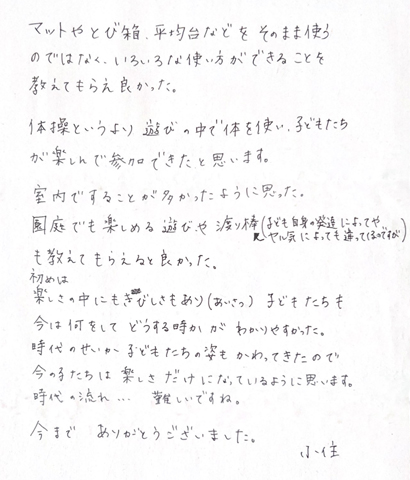 マットやとび箱、平均台などを そのまま使う
のではなく、いろいろな使い方ができることを
教えてもらえ良かった。
体操というより 遊びの中で体を使い、子どもたち
が楽しんで参加できたと思います。
室内ですることが多かったように思った。
園庭でも楽しめる遊びや 渡り棒(子ども自身の発達によってや
ヤル気によっても違ってくるのですが)
も教えてもらえると良かった。
初めは
楽しさの中にもきびしさもあり(あいさつ) 子どもたちも
今は何をして どうする時かが わかりやすかった。
時代のせいか 子どもたちの姿も かわってきたので
今の子たちは 楽しさだけになっているように思います。
時代の流れ… 難しいですね。
今まで ありがとうございました。
小住